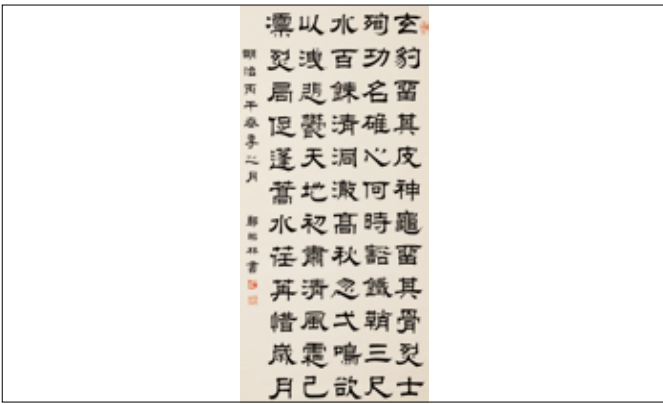 玄豹畱其皮神龜畱其骨烈士
殉功名碓心何時豁鐵鞘三尺
水百鍊清洞澈高秋忽弌鳴欲
以洩悲鬱天地初肅清風霜已
凜烈局促蓬蒿水荏苒惜歲月
明治丙午春季之月 鄭林書